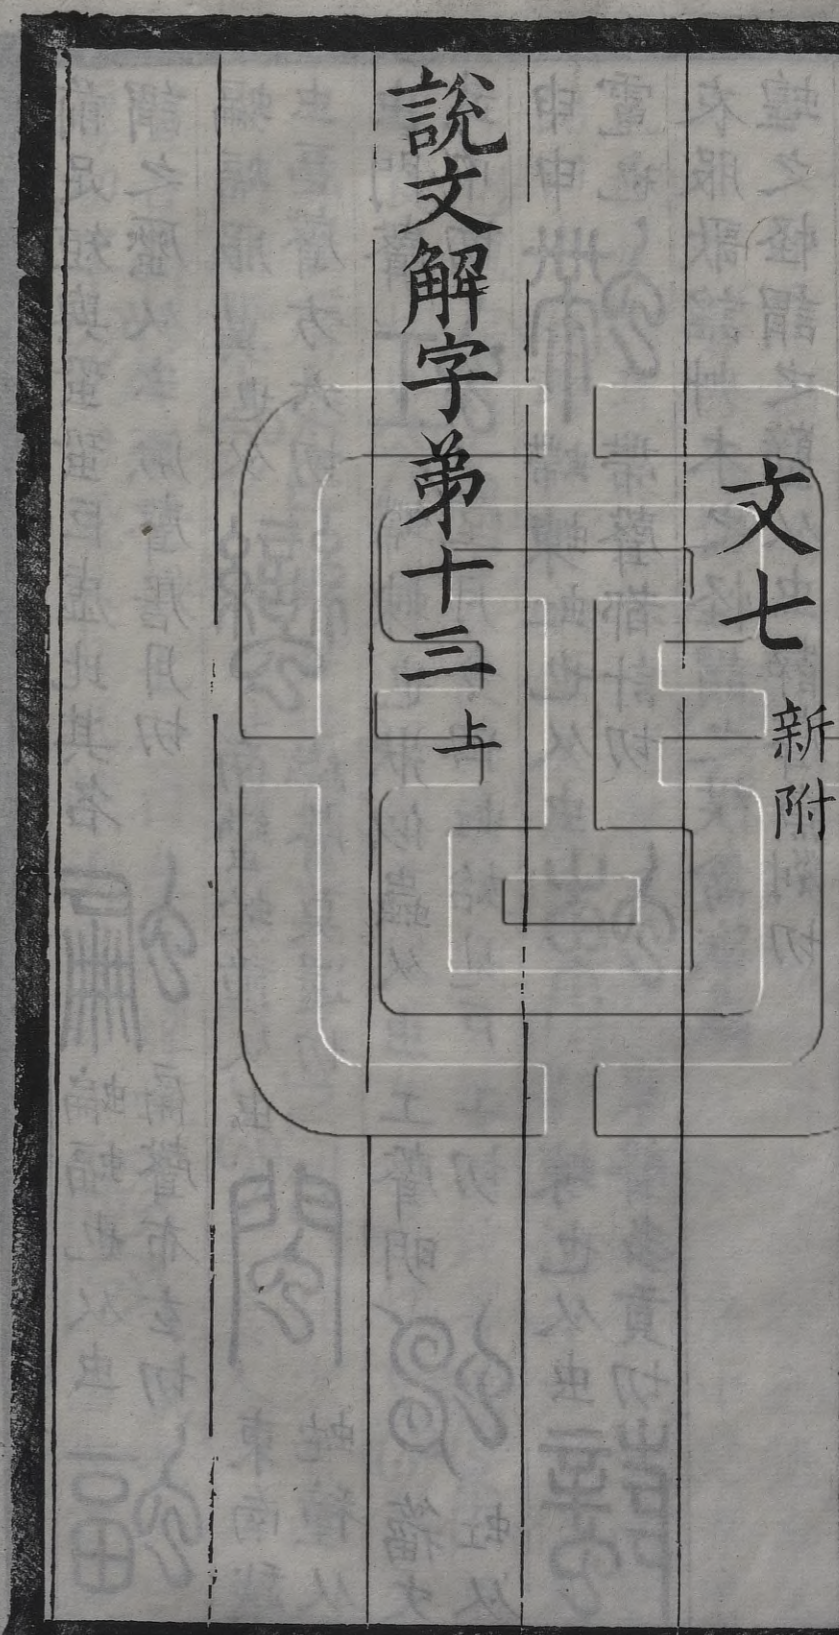 文七新附
說文解字弟十三上